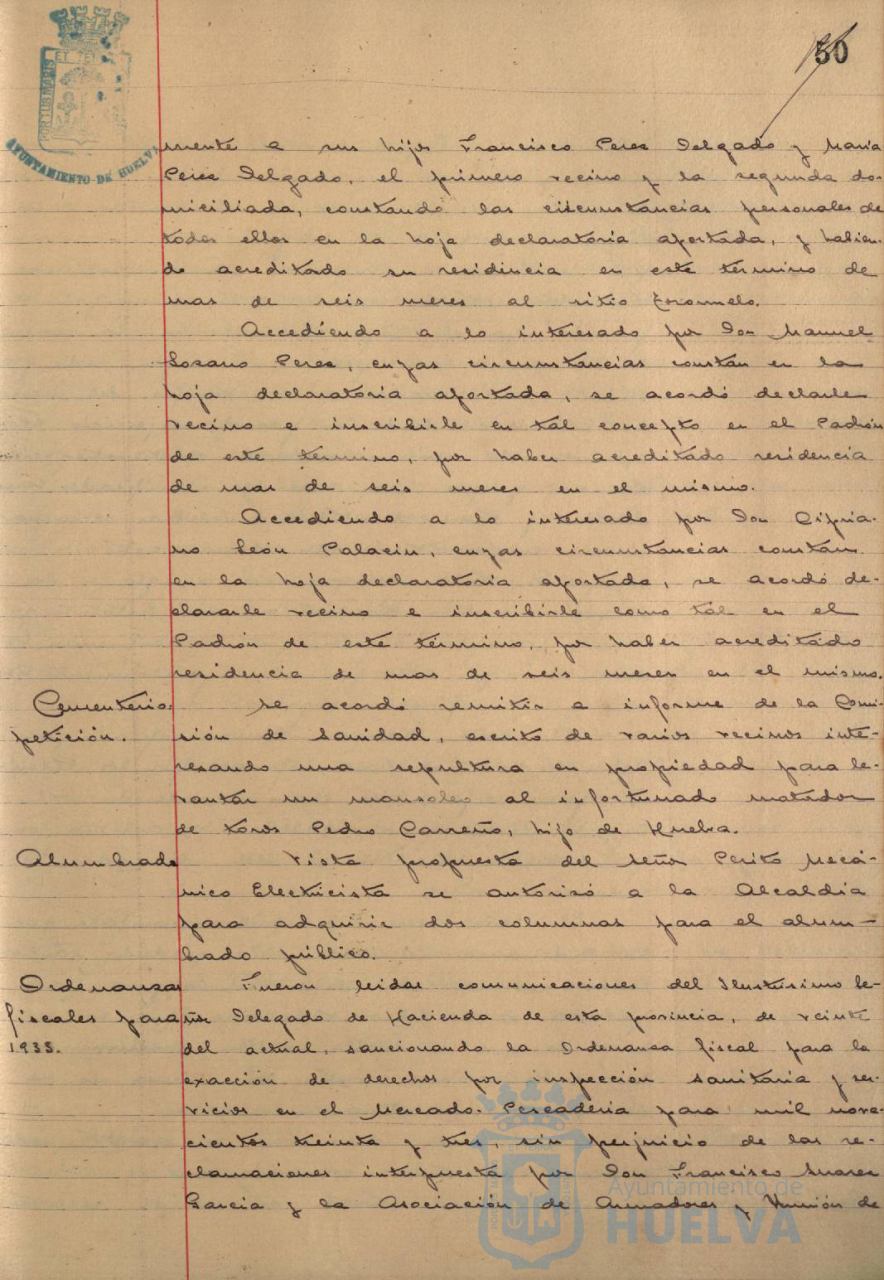 50
PORTUS MARIS ET TE
AYUNTAMIENTO DE HUELVA
mente a sus hijos Francisco Perez Delgado y Maria
Perez Delgado, el primero vecino y la segunda do-
miciliada, constando las circunstancias personales de
todos ellos en la hoja declaratoria aportada, y habien-
do acreditado su residencia en este término de
mas de seis meses al sitio
Accediendo a lo interesado por Don Manuel
Lozano Perez, cuyas circunstancias constan en la
hoja declaratoria aportada, se acordó declararle
vecino e inscribirle en tal concepto en el Padrón
de este término, por haber acreditado residencia
de mas de seis meses en el mismo.
Accediendo a lo interesado por Don Cipria-
no León Palacin, cuyas circunstancias constan
en la hoja declaratoria aportada, se acordó de-
clararle vecino e inscribirle como tal en el
Padrón de este término, por haber acreditado
residencia de mas de seis meses en el mismo.
Cementerio. Se acordó remitir a informe de la Comi-
petición. sión de Sanidad, escrito de varios vecinos inte-
resando una sepultura en propiedad para le-
vantar un mausoleo al infortunado matador
de toros Pedro Carreño, hijo de Huelva.
Alumbrado Vista propuesta del Señor Perito Mecá-
nico Electricista se autorizó a la Alcaldia
para adquirir dos columnas para el alum-
brado público.
Ordenanzas Fueron leidas comunicaciones del Ilustrisimo Se-
fiscales para ñor Delegado de Hacienda de esta provincia, de veinte
1933. del actual, sancionando la Ordenanza fiscal para la
exacción de derechos por inspección sanitaria y ser-
vicios en el Mercado-Pescaderia para mil nove-
cientos treinta y tres, sin perjuicio de las re-
clamaciones interpuesta por Don Francisco Suarez
Garcia y la Asociación de Armadores y Unión de
Ayuntamiento de
HUELVA